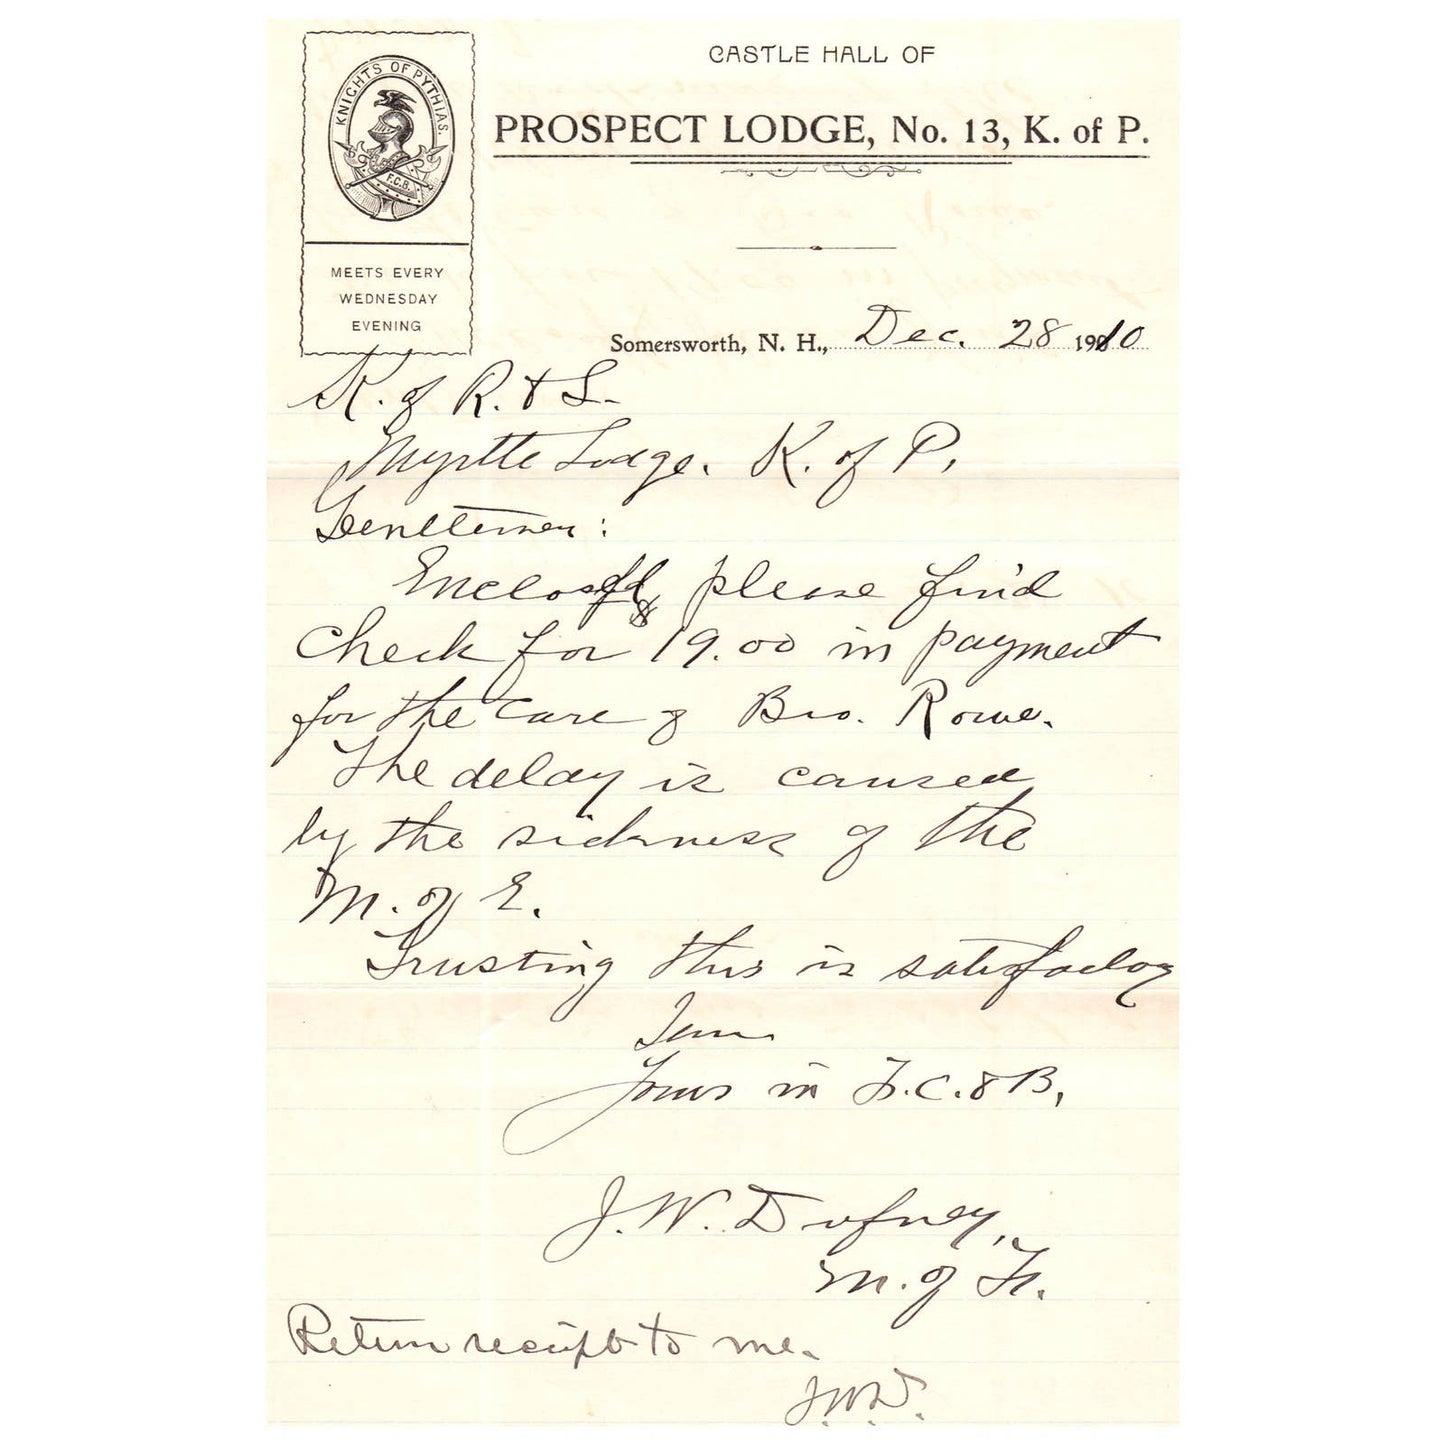 KNIGHTS OF PYTHIAS.
F.C.B.
MEETS EVERY
WEDNESDAY
EVENING
CASTLE HALL OF
PROSPECT LODGE, No. 13, K. of P.
Somersworth, N. H., Dec. 28 1910
K. of R. & S.
Myrtle Lodge. K. of P.
Gentlemen:
Enclosed please find
check for $19.00 in payment
for the care of Bro. Rowe.
The delay is caused
by the sickness of the
M. of E.
Trusting this is satisfactory
I am
Yours in F. C. & B,
J. W. Dufney,
M. of F.
Return receipt to me.
J.W.D.